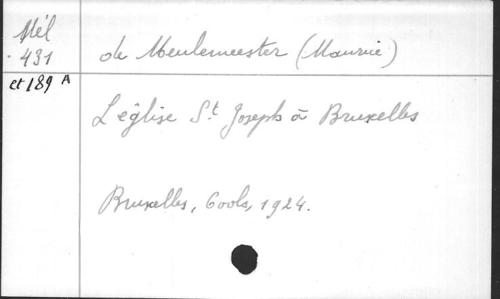 Mél
431
et 189 A
de Meulemeester (Maurice)
L'église St Joseph à Bruxelles
Bruxelles, Cools, 1924.